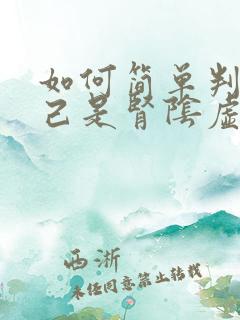 如何简单判
己是肾阴虚
西淅
未经同意禁止转载